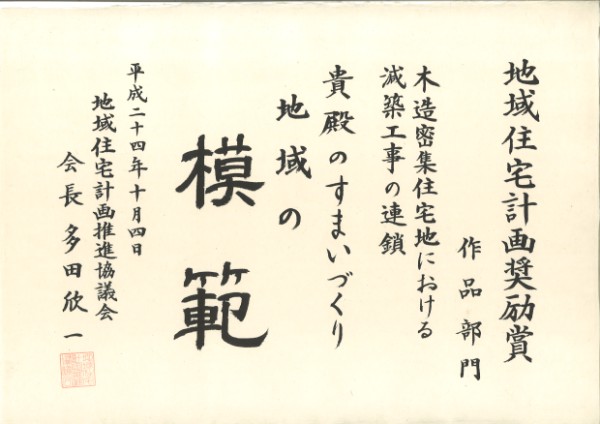 地域住宅計画奨励賞
作品部門
木造密集住宅地における
減築工事の連鎖
貴殿のすまいづくり
地域の
模範
平成二十四年十月四日
地域住宅計画推進協議会
会長 多田欣一